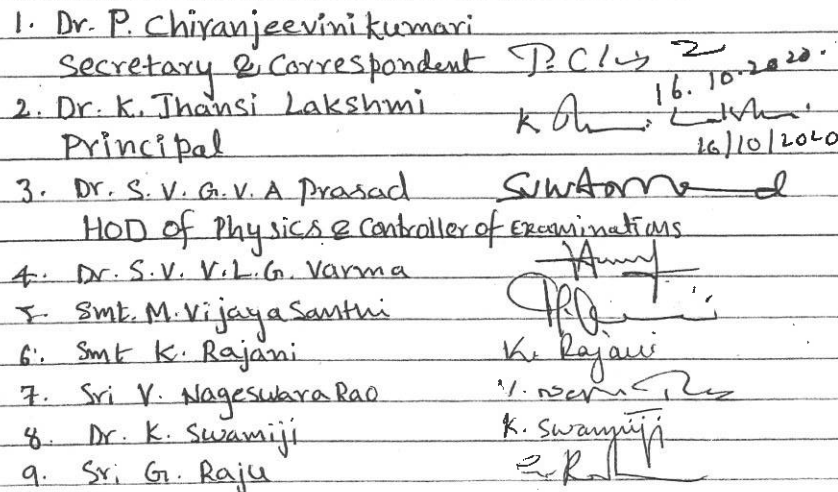 1. Dr. P. Chiranjeevini kumari
Secretary & Correspondent
16.10.2020.
2. Dr. K. Jhansi Lakshmi
Principal
16/10/2020
3. Dr. S. V. G. V. A Prasad
HOD of Physics & Controller of Examinations
4. Dr. S. V. V. L. G. Varma
5. Smt. M. Vijaya Santhi
6. Smt K. Rajani K. Rajani
7. Sri V. Nageswara Rao
8. Dr. K. Swamiji K. Swamiji
9. Sri G. Raju